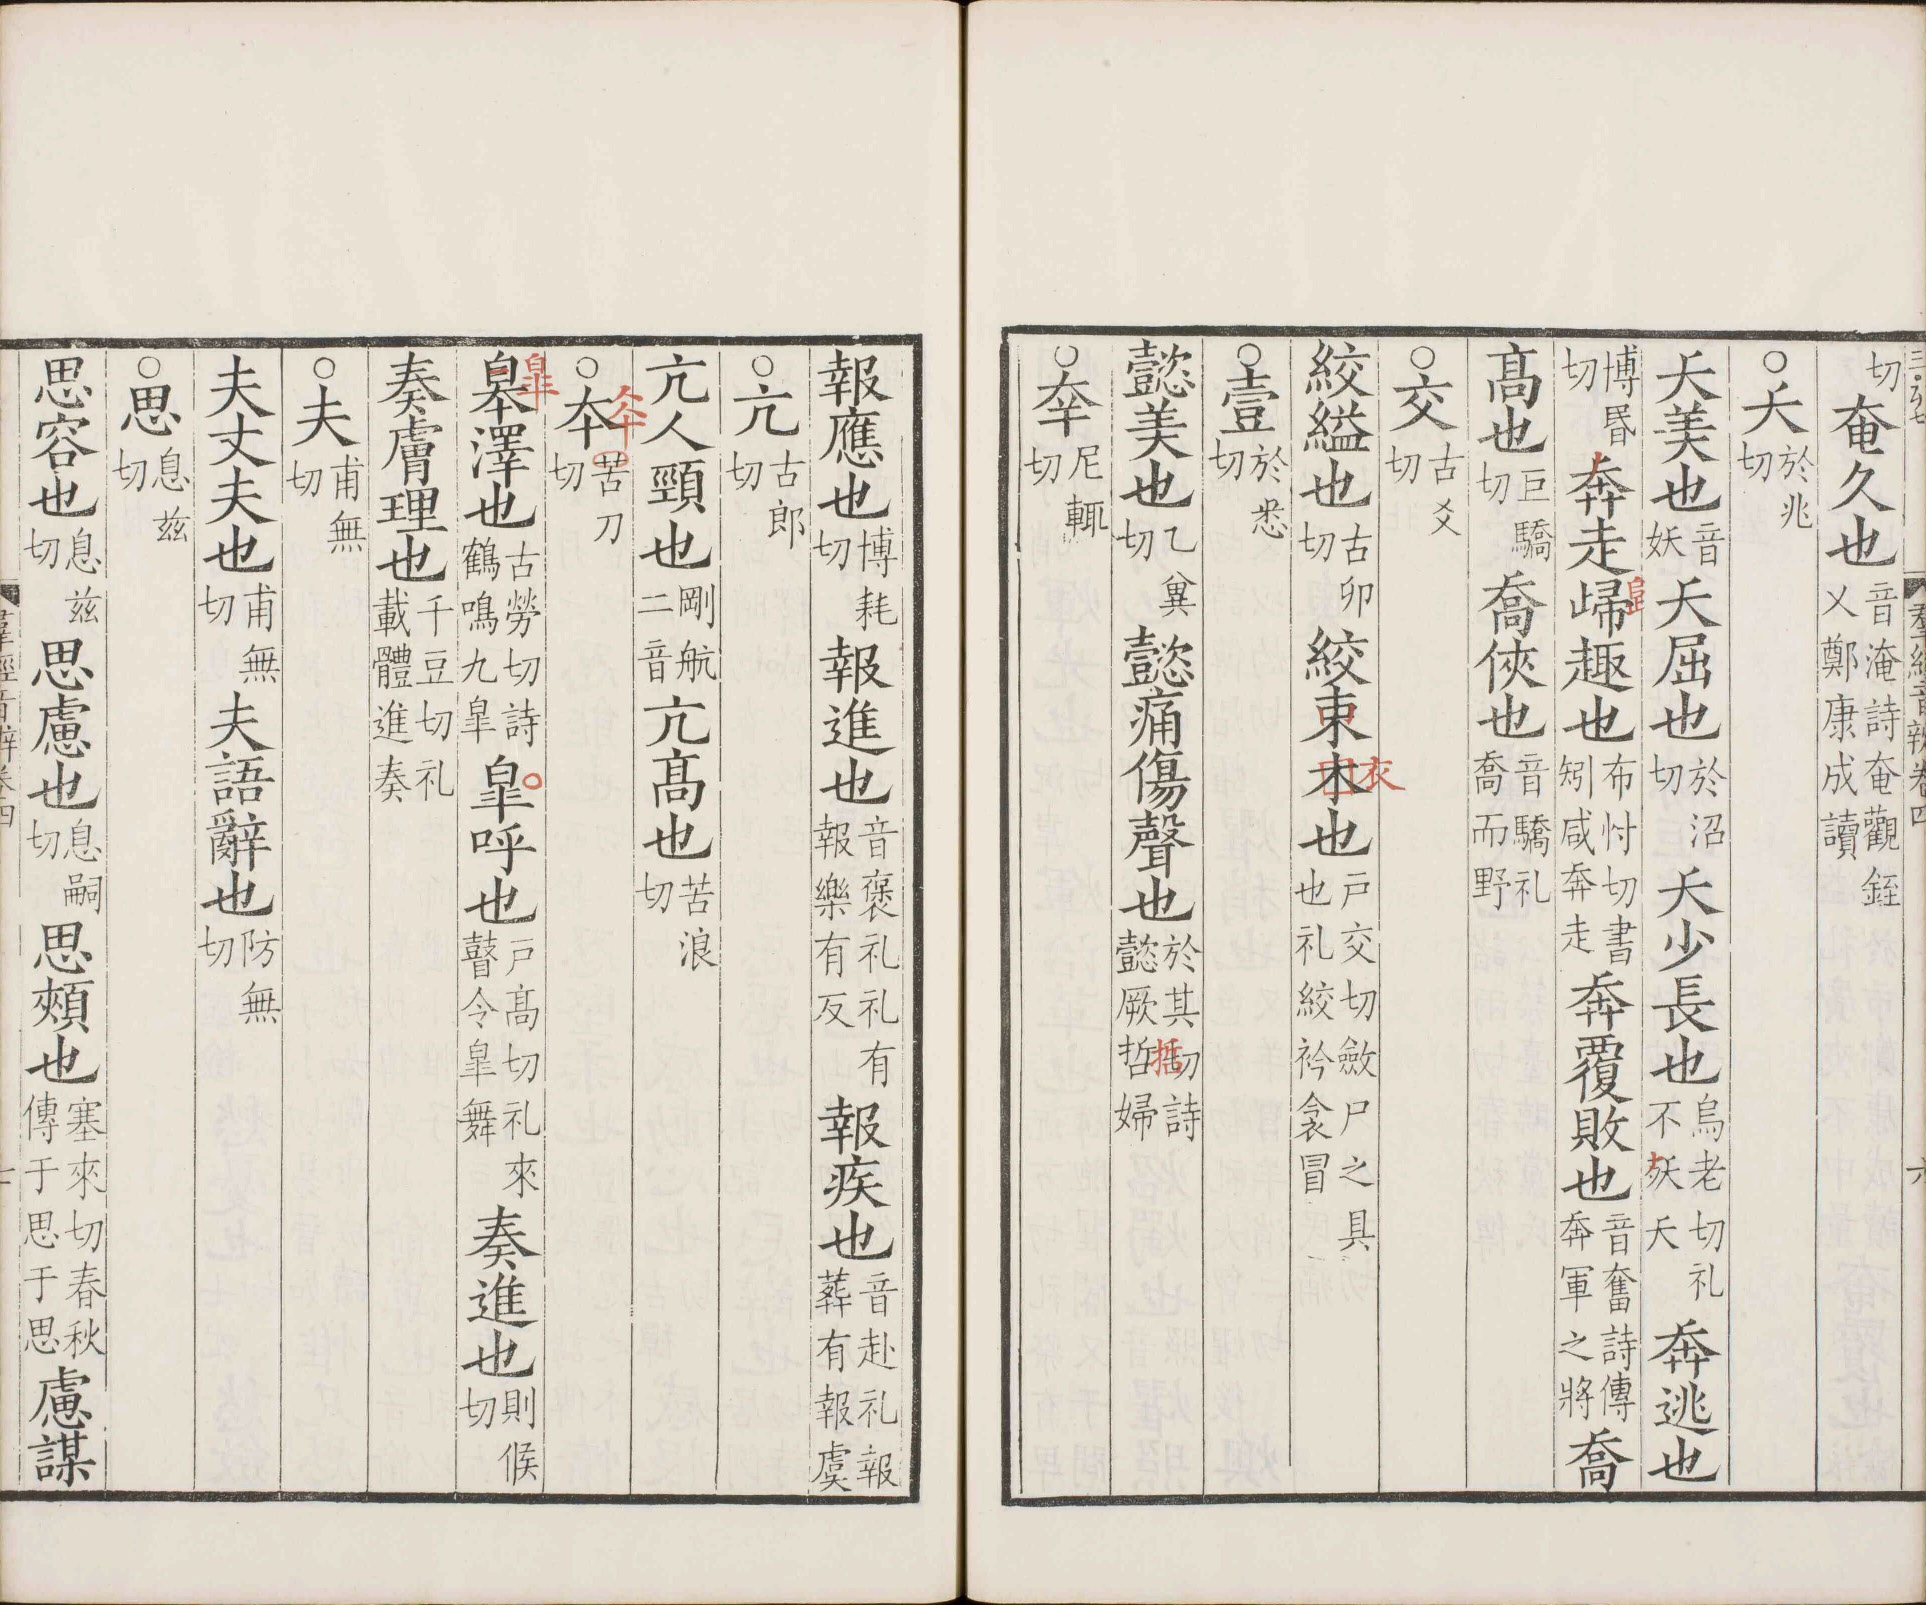 切奄久也音淹詩奄觀銍乂鄭康成讀
○夭於兆切
夭美也音妖夭屈也於沼切夭少長也烏老切礼不殀夭奔逃也
博昬切奔走歸趣也布忖切書矧咸奔走奔覆敗也音奮詩傳奔軍之將喬
髙也巨驕切喬俠也音驕礼喬而野
○交古爻切
絞縊也古卯切絞束木也戸交切斂尸之具也礼絞衿衾冒
衣
○壹於悉切
懿美也乙兾切懿痛傷聲也於其切詩懿厥哲婦
○㚔尼輒切
羣經音辨卷四
六
報應也博耗切報進也音褒礼礼有報樂有反報疾也音赴礼報葬有報虞
○亢古郎切
亢人頸也剛航二音亢髙也苦浪切
○夲苦刀切
皐澤也古勞切詩鶴鳴九皐皐呼也戸髙切礼來瞽令皐舞奏進也則候切
奏膚理也千豆切礼載體進奏
○夫甫無切
夫丈夫也甫無切夫語辭也防無切
○思息兹切
思容也息兹切思慮也息嗣切思頰也塞來切春秋傳于思于思慮謀
羣經音辨卷四